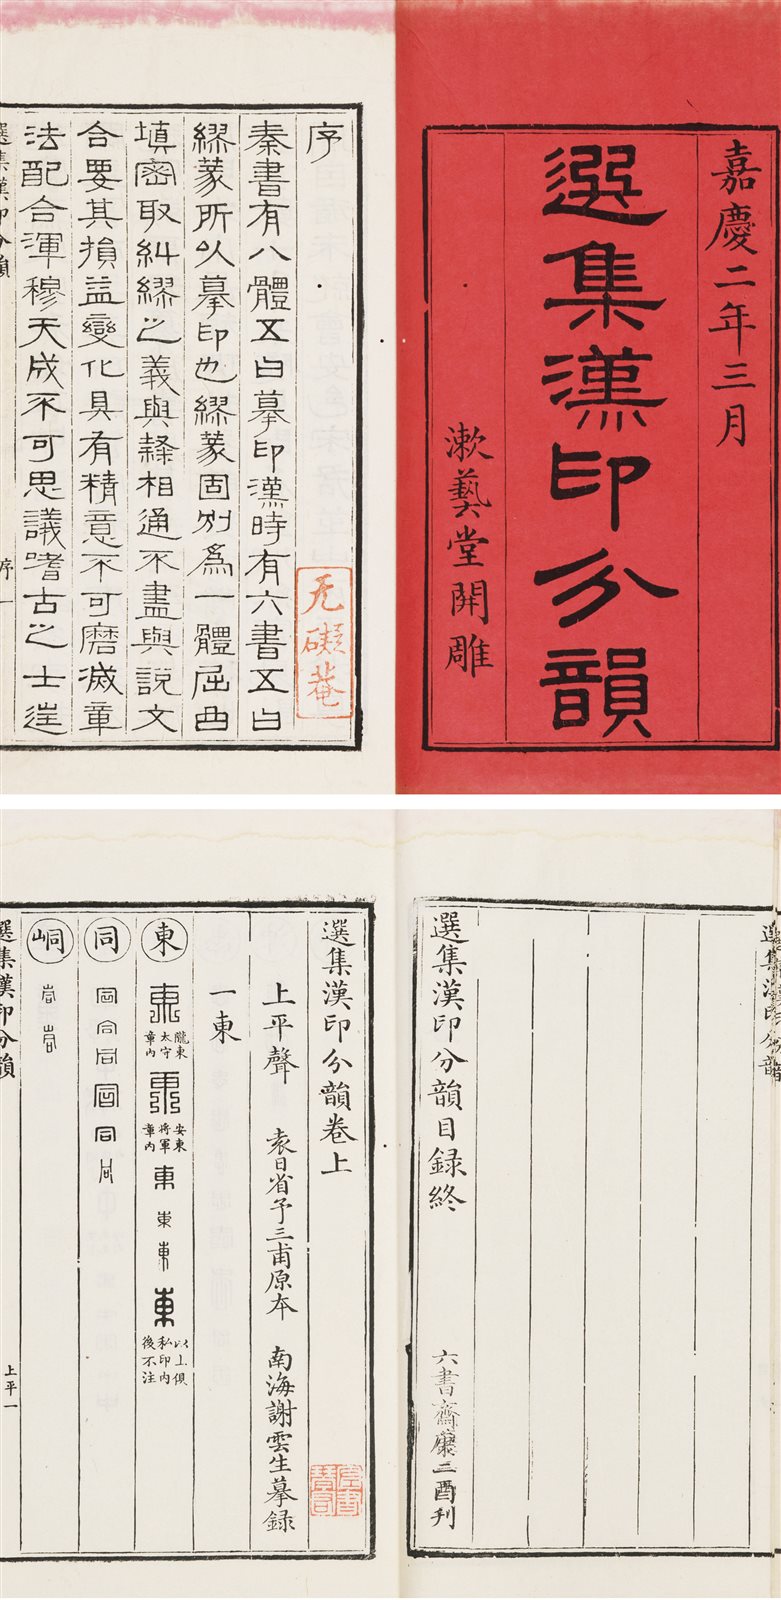 嘉慶二年三月
選集漢印分韻
漱藝堂開雕
序
秦書有八體五曰摹印漢時有六書五曰
繆篆所以摹印也繆篆固別為一體屈曲
填密取糾繆之義與隸相通不盡與說文
合要其損益變化具有精意不可磨滅章
法配合渾穆天成不可思議嗜古之士逞
无礙菴
選集漢印分韻
序一
選集漢印分韻
選集漢印分韻目録終
六書齋 二酉刊
選集漢印分韻卷上
上平聲 袁日省予三甫原本 南海謝雲生摹録
一東
東 東 隴東太守章內 東 安東將軍章內 東 東 東 東 以上俱私印內後不注
同 同 同 同 同 同 同
峒 峒 峒
選集漢印分韻
上平一